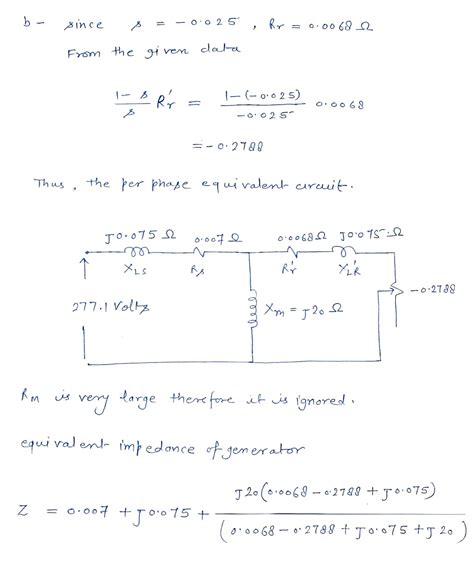 b - since s = -0.025, Rr = 0.0068 Ω
From the given data
1-s/s R'r = 1-(-0.025)/-0.025 0.0068
= -0.2788
Thus, the per phase equivalent circuit.
J0.075 Ω 0.007 Ω 0.0068Ω J0.075 Ω
XLS Rs R'r X'LR -0.2788
277.1 Volts Xm = J20 Ω
Rm is very large therefore it is ignored.
equivalent impedance of generator
Z = 0.007 + J0.075 + J20(0.0068 - 0.2788 + J0.075)/(0.0068 - 0.2788 + J0.075 + J20)